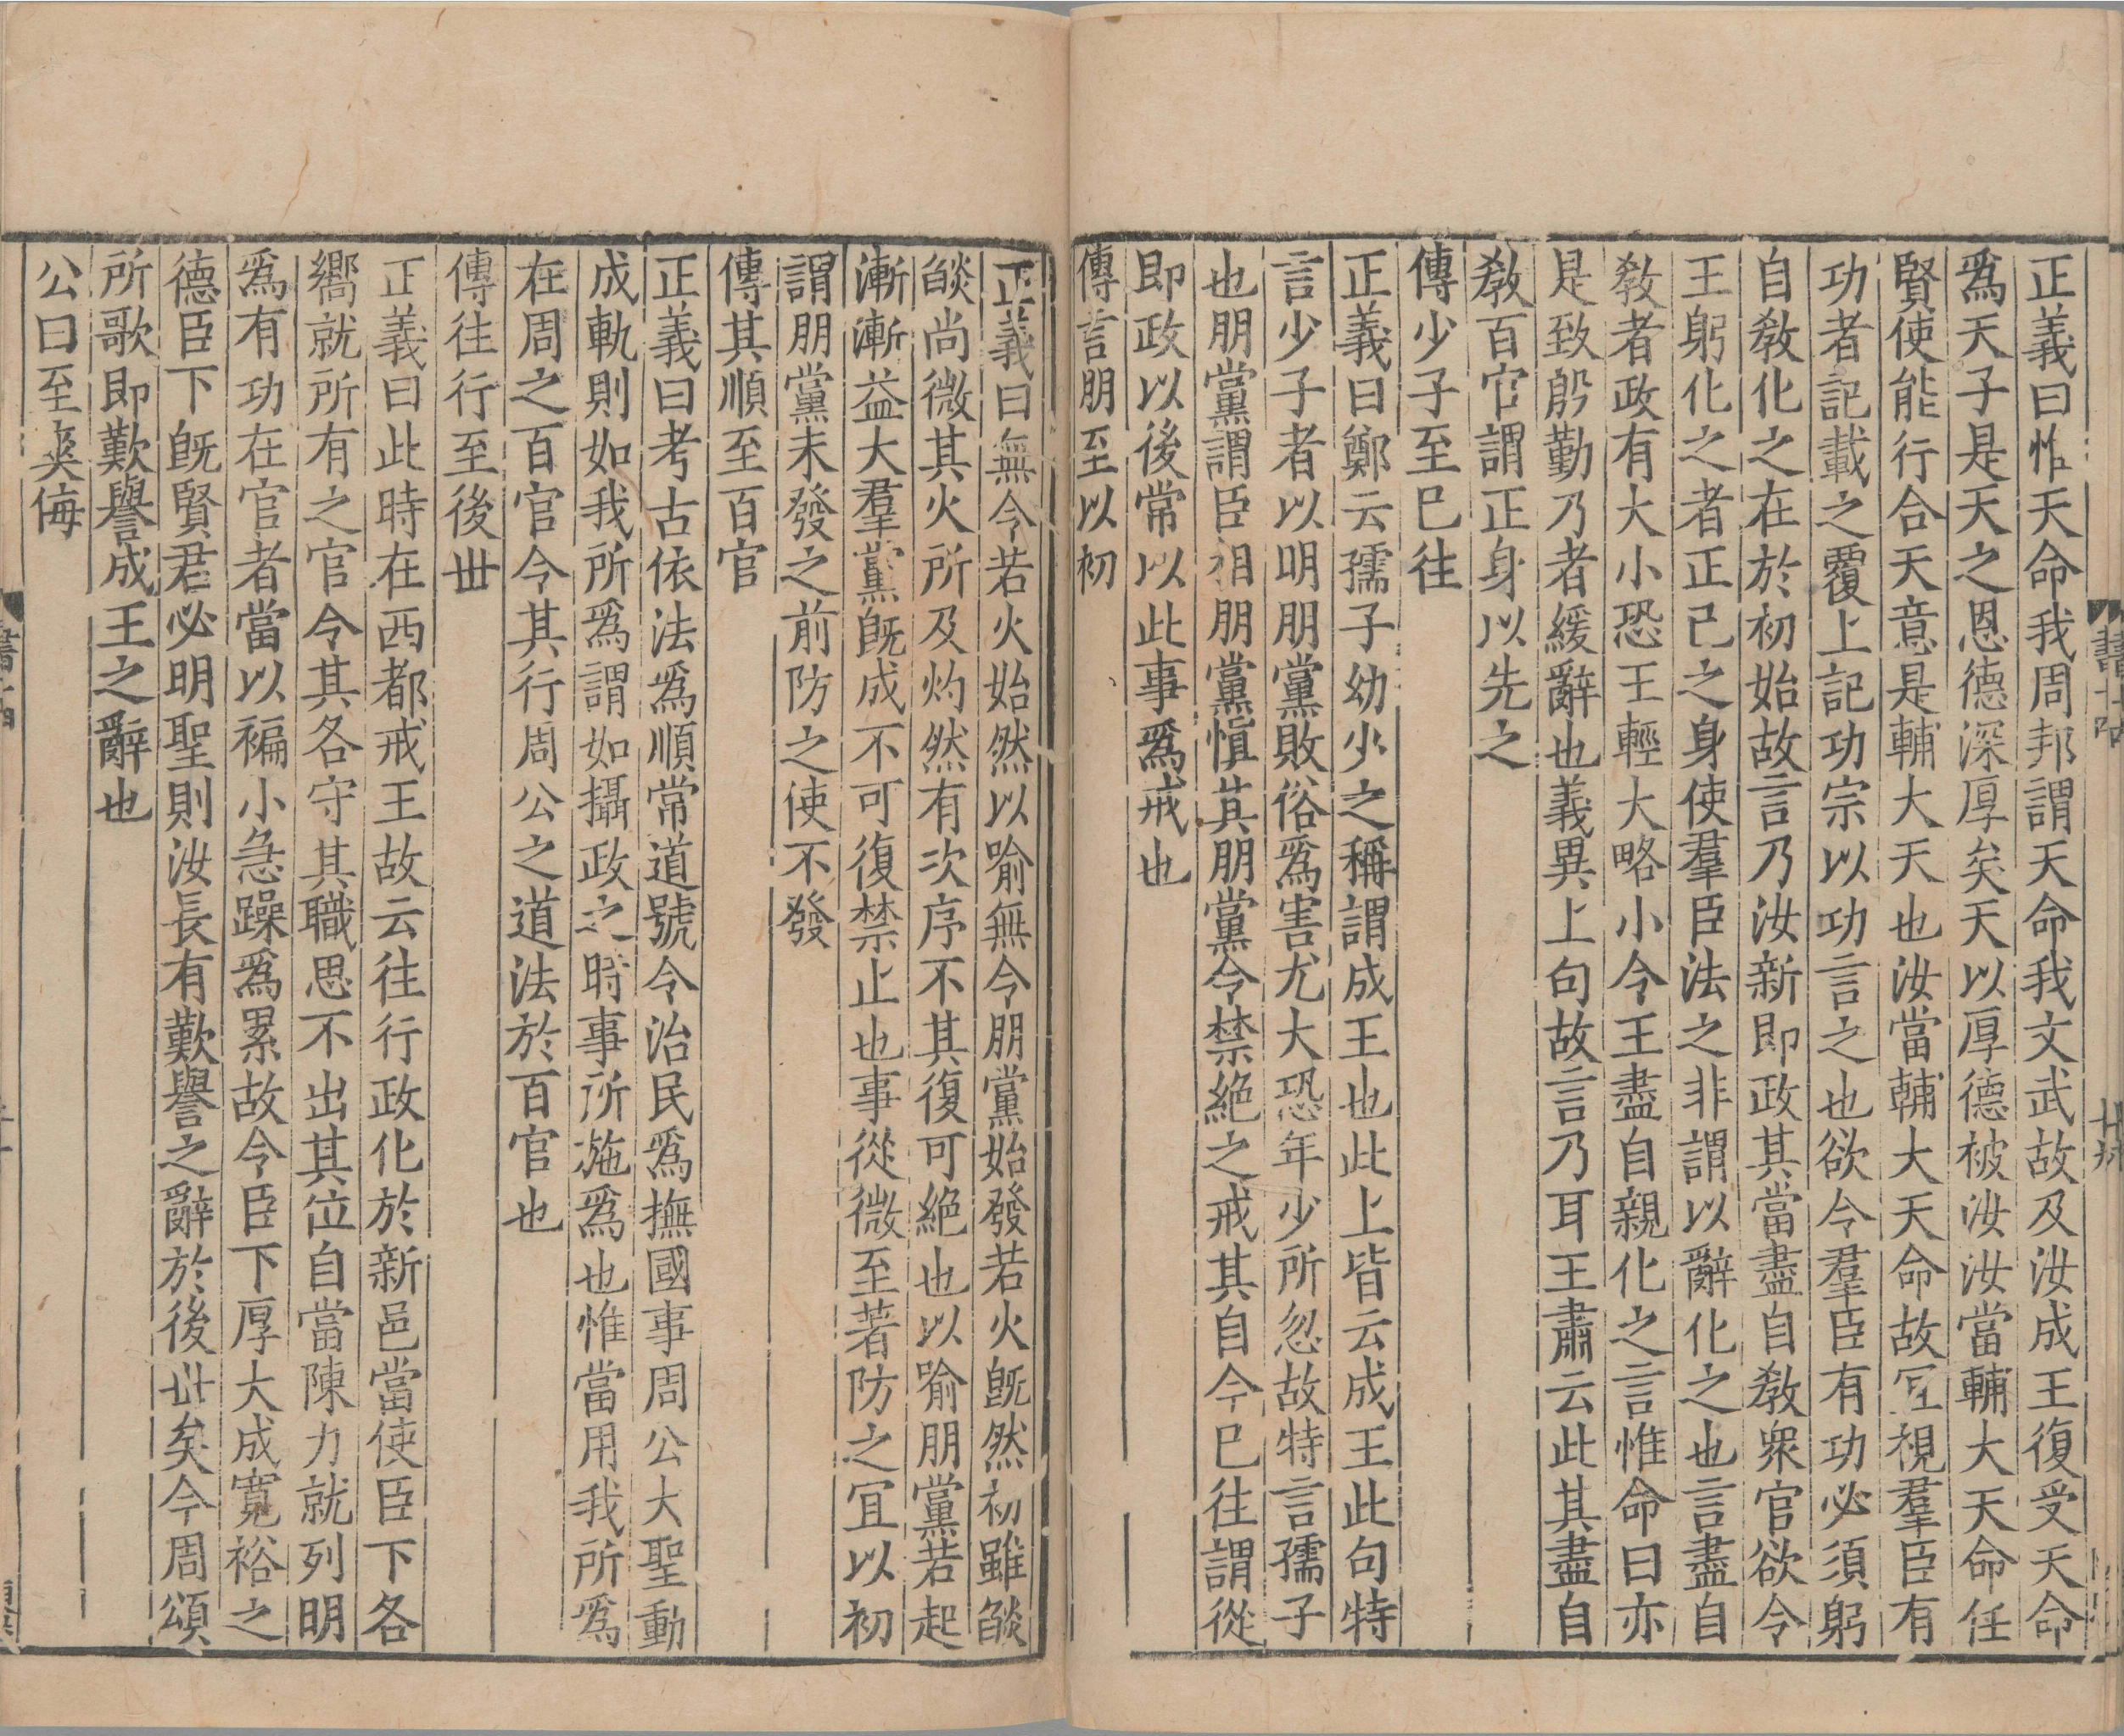 正義曰惟天命我周邦謂天命我文武故及汝成王復受天命
爲天子是天之恩德深厚矣天以厚德被汝汝當輔大天命任
賢使能行合天意是輔大天也汝當輔大天命故宜視羣臣有
功者記載之覆上記功宗以功言之也欲令羣臣有功必須躬
自敎化之在於初始故言乃汝新即政其當盡自敎衆官欲令
王躬化之者正己之身使羣臣法之非謂以辭化之也言盡自
敎者政有大小恐王輕大略小令王盡自親化之言惟命曰亦
是致殷勤乃者緩辭也義異上句故言乃耳王肅云此其盡自
敎百官謂正身以先之
傳少子至巳往
正義曰鄭云孺子幼少之稱謂成王也此上皆云成王此句特
言少子者以明朋黨敗俗爲害尤大恐年少所忽故特言孺子
也朋黨謂臣相朋黨愼其朋黨令禁絶之戒其自今巳往謂從
即政以後常以此事爲戒也
傳言朋至以初
正義曰無令若火始然以喻無令朋黨始發若火旣然初雖燄
燄尚微其火所及灼然有次序不其復可絶也以喻朋黨若起
漸漸益大羣黨旣成不可復禁止也事從微至著防之宜以初
謂朋黨未發之前防之使不發
傳其順至百官
正義曰考古依法爲順常道號令治民爲撫國事周公大聖動
成軌則如我所爲謂如攝政之時事所施爲也惟當用我所爲
在周之百官令其行周公之道法於百官也
傳往行至後世
正義曰此時在西都戒王故云往行政化於新邑當使臣下各
嚮就所有之官令其各守其職思不出其位自當陳力就列明
爲有功在官者當以褊小急躁爲累故令臣下厚大成寬裕之
德臣下旣賢君必明聖則汝長有歎譽之辭於後世矣今周頌
所歌即歎譽成王之辭也
公曰至爽侮